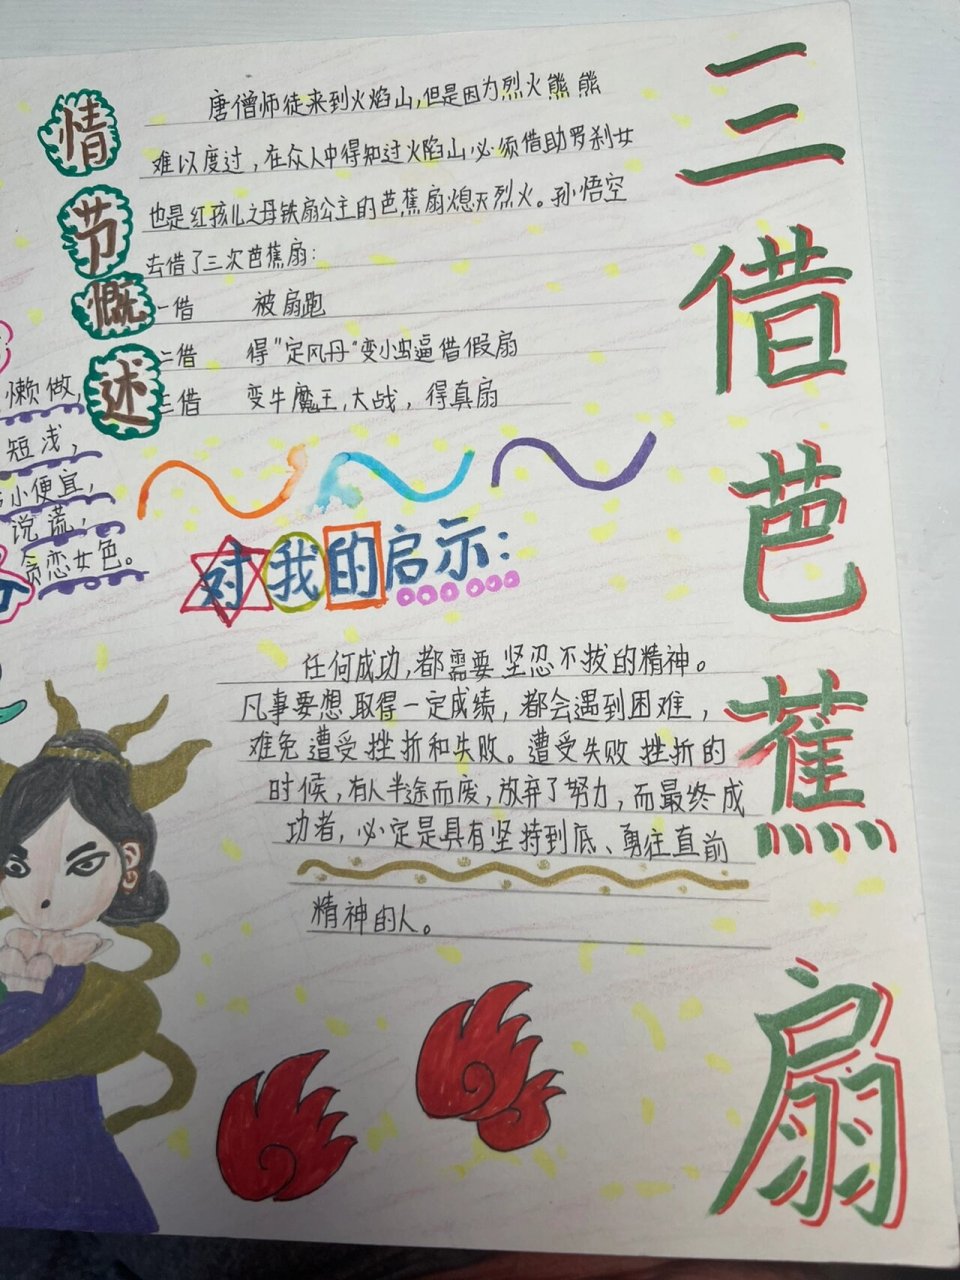 三借芭蕉扇
情节慨述
唐僧师徒来到火焰山,但是因为烈火熊熊
难以度过，在众人中得知过火焰山必须借助罗刹女
也是红孩儿之母铁扇公主的芭蕉扇熄灭烈火。孙悟空
去借了三次芭蕉扇：
一借 被扇跑
二借 得"定风丹"变小虫逼借假扇
三借 变牛魔王,大战，得真扇
懒做,
短浅，
小便宜，
说谎，
贪恋女色。
对我的启示：
任何成功,都需要坚忍不拔的精神。
凡事要想取得一定成绩，都会遇到困难，
难免遭受挫折和失败。遭受失败挫折的
时候，有人半途而废，放弃了努力，而最终成
功者，必定是具有坚持到底、勇往直前
精神的人。